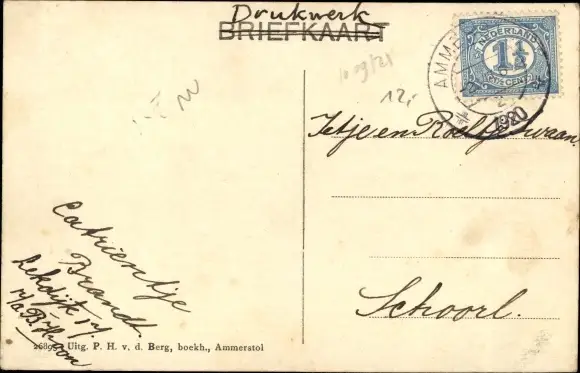 Drukwerk
BRIEFKAART
NEDERLAND
1½
CENT
AMME
1920
12,-
Jetje en Roelfje Zwaan.
Schoorl.
Catrientje
Brandt
Lekdijk
26895 Uitg. P. H. v. d. Berg, boekh., Ammerstol